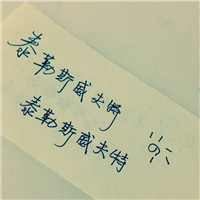 泰勒斯威夫特
泰勒斯威夫特